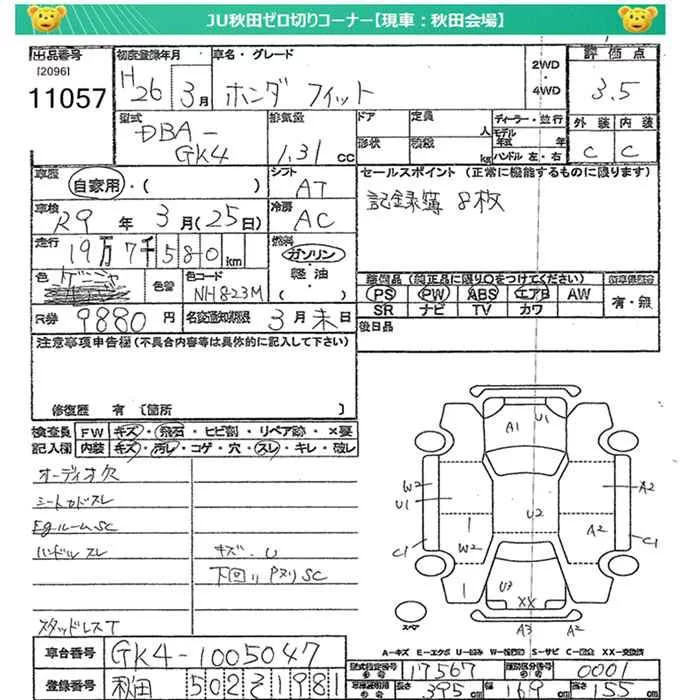 JU秋田ゼロ切りコーナー【現車：秋田会場】
出品番号 初度登録年月 車名・グレード 2WD・4WD 評価点
[2096]
11057 H26 3月 ホンダ フィット 3.5
型式 排気量 ドア 定員 人 ディーラー・並行 外装 内装
DBA-GK4 1.31 cc 形状 積載 kg モデル年式 年 ハンドル 左・右 C C
車歴 自家用・( ) シフト AT セールスポイント (正常に機能するものに限ります)
車検 R9年 3月(25日) 冷房 AC 記録簿 8枚
走行 19万7千580km 燃料 ガソリン・軽油・( )
色 色替 色コード NH823M 装備品 (純正品に限り○をつけてください)
PS PW ABS エアB AW 有・無
SR ナビ TV カワ
R券 9880円 名変通知期限 3月末日 後日品
注意事項申告欄 (不具合内容等は具体的に記入して下さい)
修復歴 有 [箇所 ]
検査員 FW キズ・飛石・ヒビ割・リペア跡・×要
記入欄 内装 キズ・汚レ・コゲ・穴・スレ・キレ・破レ
オーディオ欠
Egルーム SC
ハンドル スレ キズ. U
スタッドレスT
A1 U1
W2 A2
U1 U2
W2 A2
C1 C1
U3
XX
A3 A2
スペア
A-キズ E-エクボ U-凹み W-補修跡 S-サビ C-腐食 XX-交換済
車台番号 GK4-1005047 型式指定番号 17567 類別区分番号 0001
登録番号 秋田 502 1981 長さ 395cm 幅 69cm 高さ 55cm